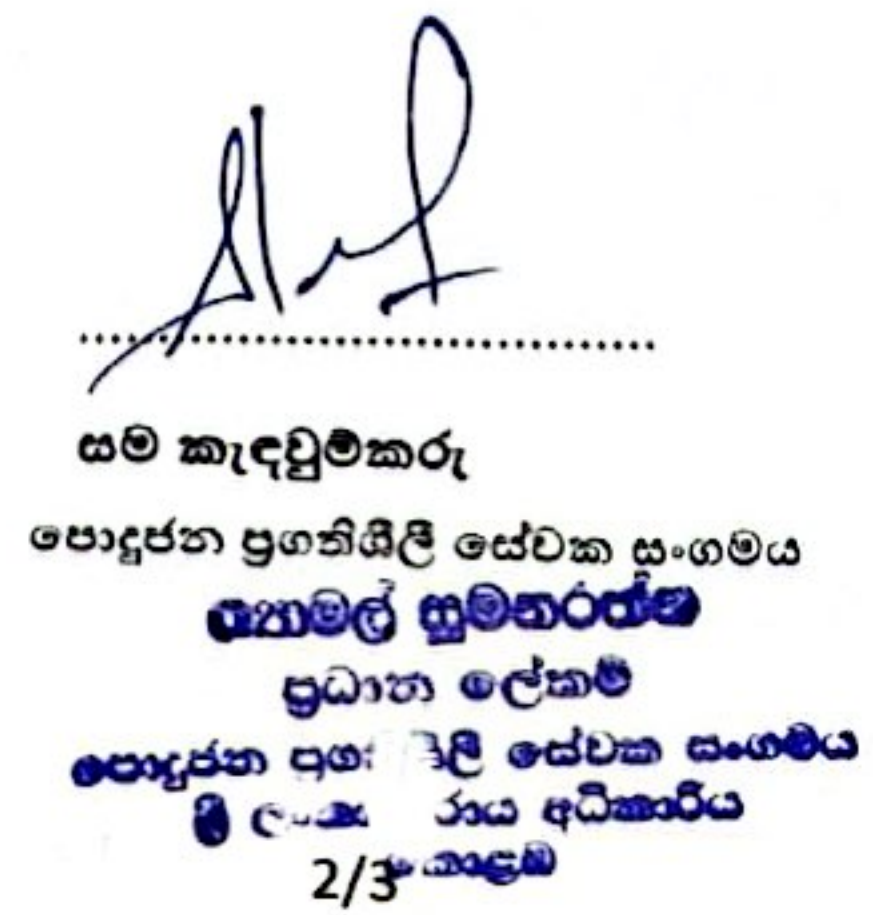 සම කැඳවුම්කරු
පොදුජන ප්‍රගතිශීලී සේවක සංගමය
ශ්‍යාමල් සුමනරත්න
ප්‍රධාන ලේකම්
පොදුජන සේවක සංගමය
ශ්‍රී වරාය අධිකාරිය
කොළඹ
2/3